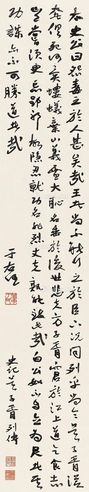 太史公曰怨毒之於人甚矣哉王者尚不能行之於臣下況同列乎向令伍子胥從
奢俱死何異螻蟻棄小義雪大恥名垂於後世悲夫方子胥窘於江上道乞食志
豈嘗須臾忘郢邪故隱忍就功名非烈丈夫孰能致此哉白公如不自立為君者其
功謀亦不可勝道者哉
史記伍子胥列傳
于右任